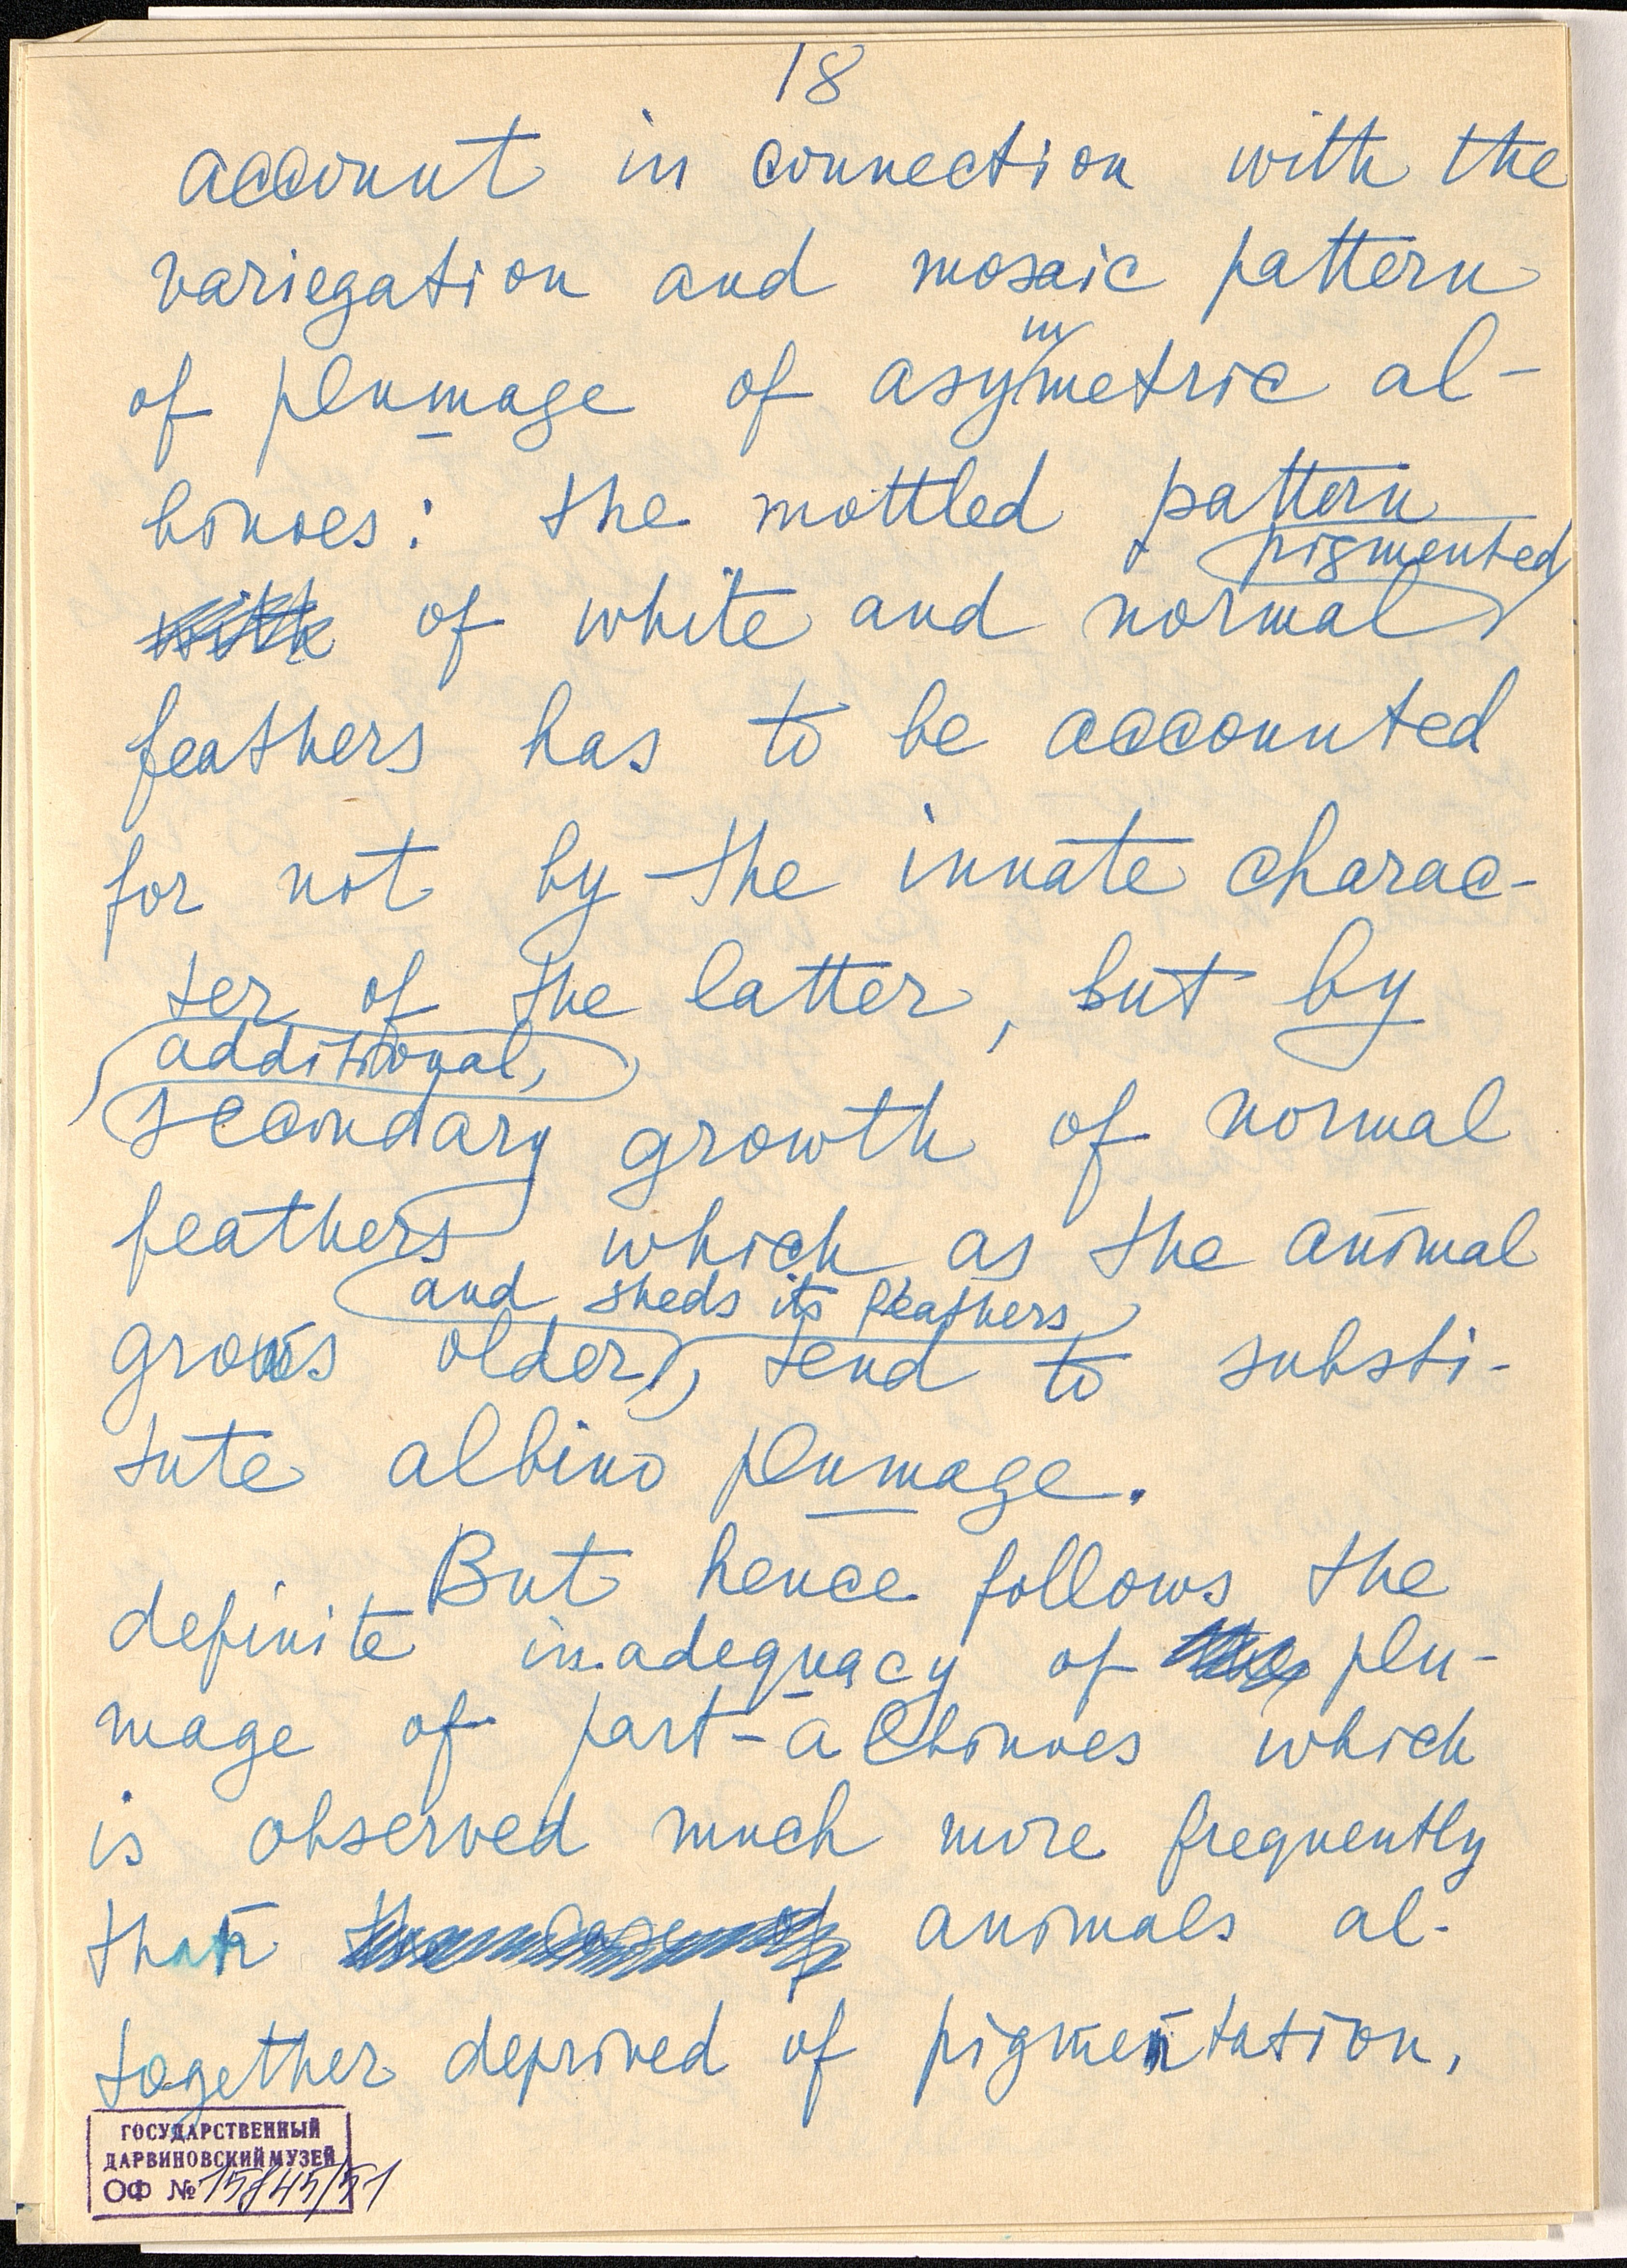 18
account in connection with the
variegation and mosaic pattern
m
of plumage of asymetric al-
binoes: the mottled pattern
pigmented
with of white and normal
feathers has to be accounted
for not by the innate charac-
ter of the latter, but by
additional,
secondary growth of normal
feathers, which as the animal
and sheds its feathers
grows older, tend to substi-
tute albino plumage.
But hence follows the
definite inadequacy of the plu-
mage of part-albinoes which
is observed much more frequently
than the case of animals al-
together deprived of pigmentation.
ГОСУДАРСТВЕННЫЙ
ДАРВИНОВСКИЙ МУЗЕЙ
ОФ № 15845/51